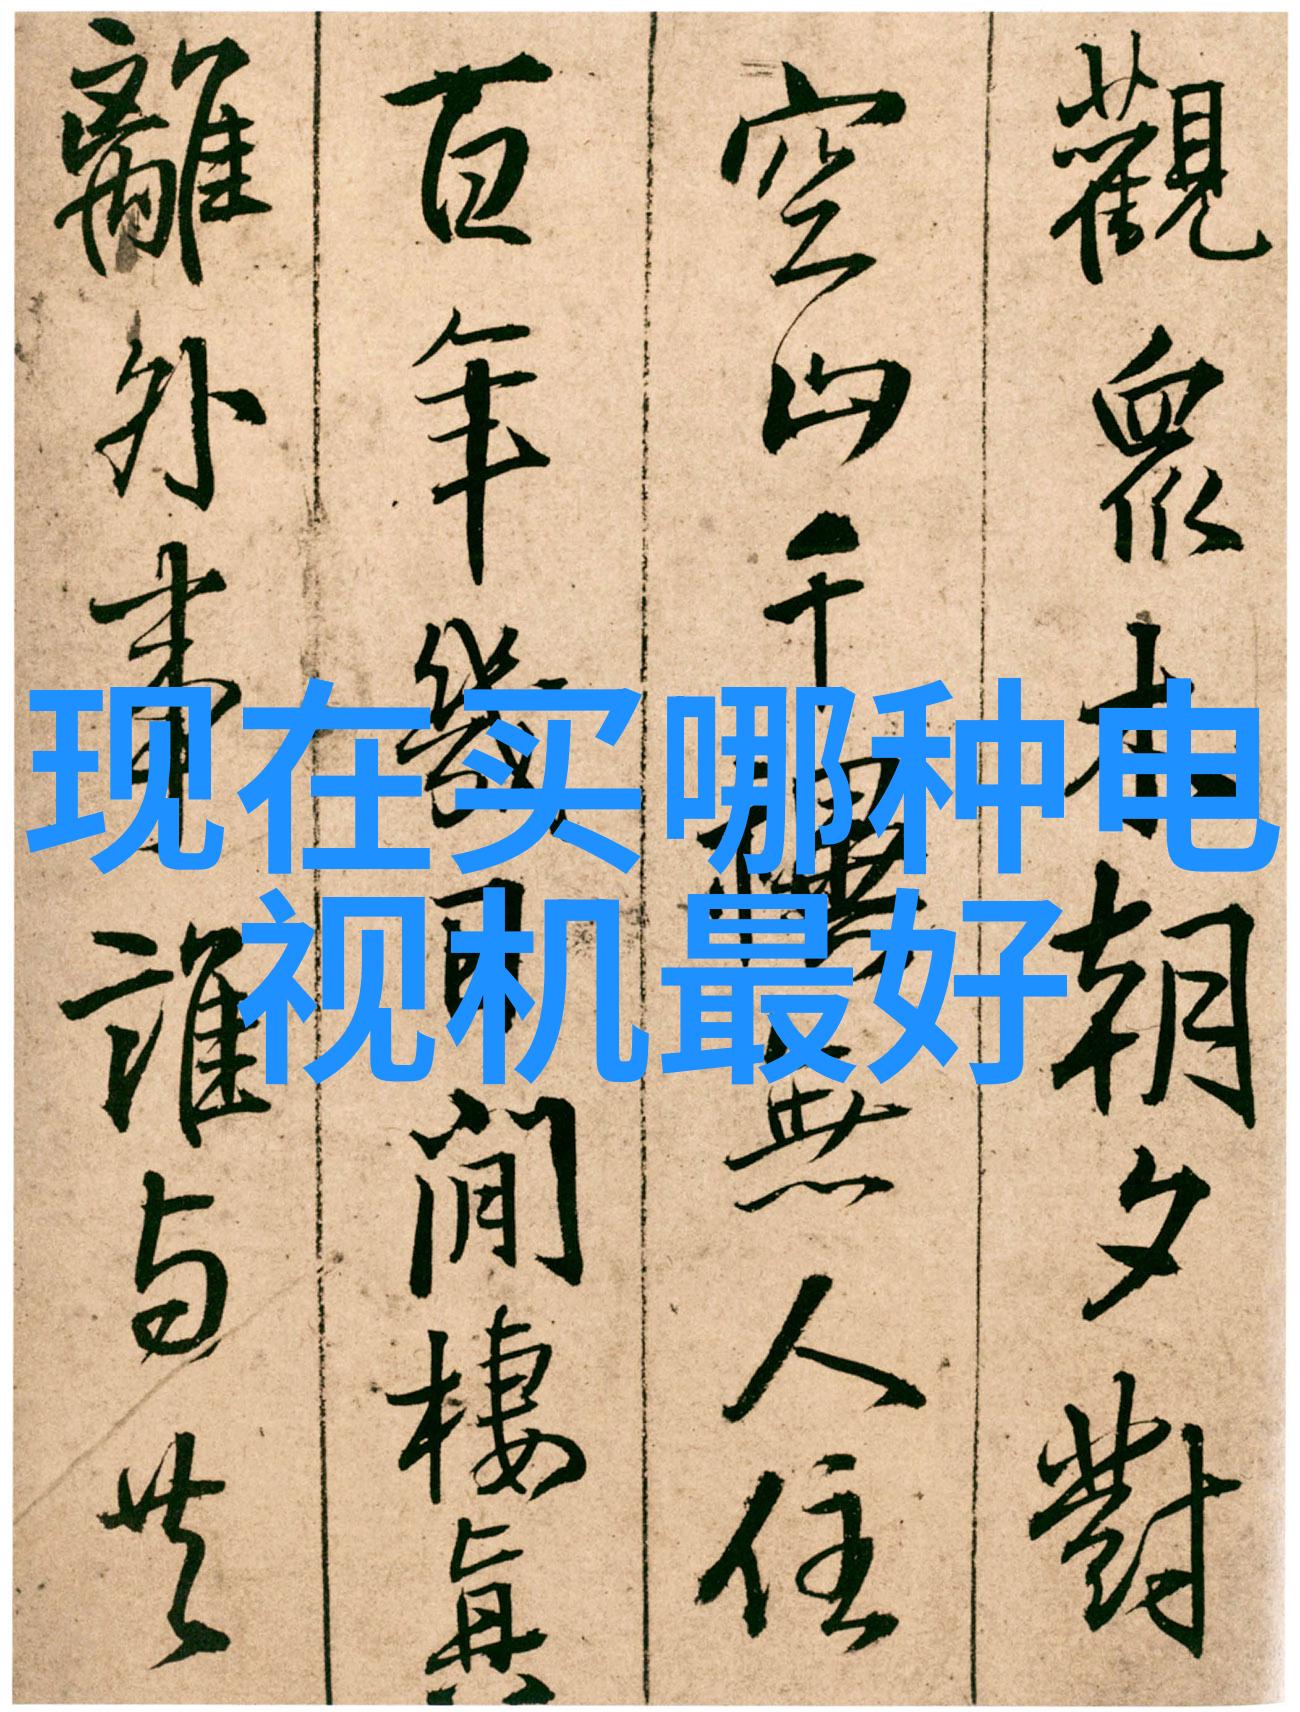 觀衆木朝夕對
空山千
無人住
百年幾日閒棲真
離外事誰与共
现在买哪种电
视机最好